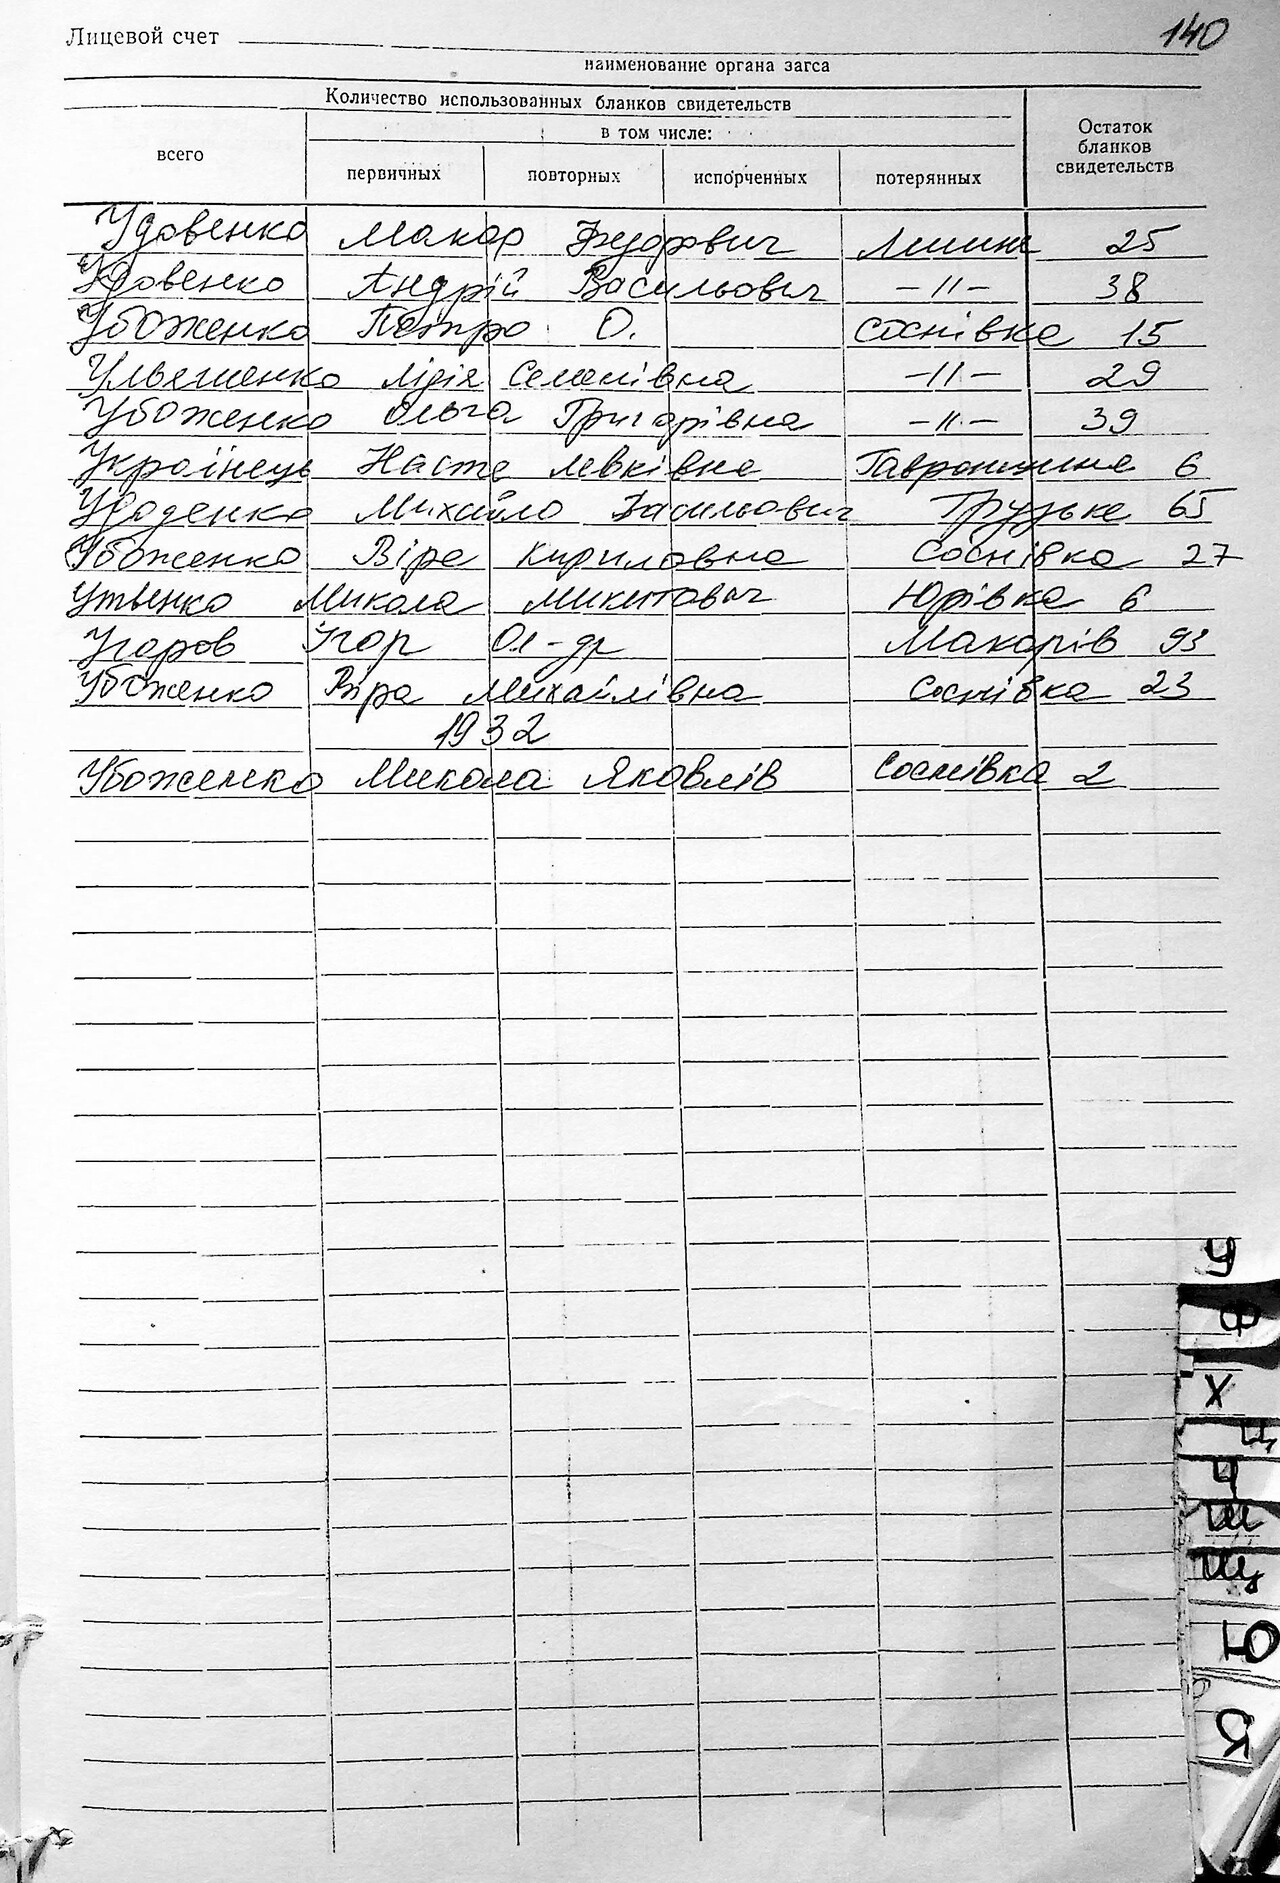 140
Лицевой счет
наименование органа загса
Количество использованных бланков свидетельств
в том числе:
Остаток бланков свидетельств
всего
первичных повторных испорченных потерянных
Удовенко Макар Федорович 25
Удовенко Андрій Васильович -//- 38
Убоженко Петро О. Соснівка 15
Ульяшенко Лідія Семенівна -//- 29
Убоженко Ольга Григорівна -//- 39
Українець Настя Левківна Гавронщина 6
Михайло Васильович Грузьке 65
Убоженко Віра Кириловна Соснівка 27
Утвенко Микола Микитович Юрівка 6
Угаров Ігор Ол-др Макарів 93
Убоженко Віра Михайлівна Соснівка 23
1932
Убоженко Микола Яковлів Соснівка 2
У
Ф
Х
Ц
Ч
Ш
Щ
Ю
Я